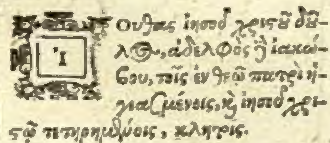 Ἰούδας ἰησοῦ χριστοῦ δοῦ-
λος, ἀδελφὸς δὲ ἰακώ-
βου, τοῖς ἐν θεῷ πατρὶ ἡ-
γιασμένοις, καὶ ἰησοῦ χρι-
στῷ τετηρημένοις, κλητοῖς.